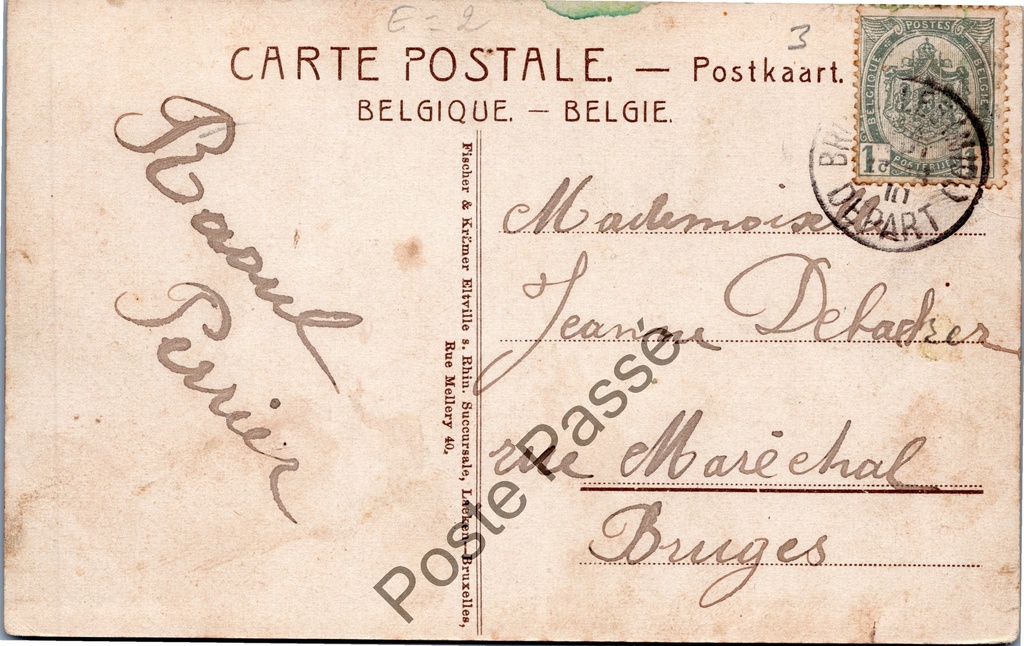 E = 2
3
CARTE POSTALE. — Postkaart.
BELGIQUE. — BELGIE.
POSTES
BELGIQUE BELGIË
1c
POSTERIJEN
DEPART
10
Raoul
Perrier
Fischer & Krämer Eltville s. Rhin. Succursale, Laeken-Bruxelles,
Rue Mellery 40.
Mademoiselle
Jeanne Debacker
rue Maréchal
Bruges
Poste Passée